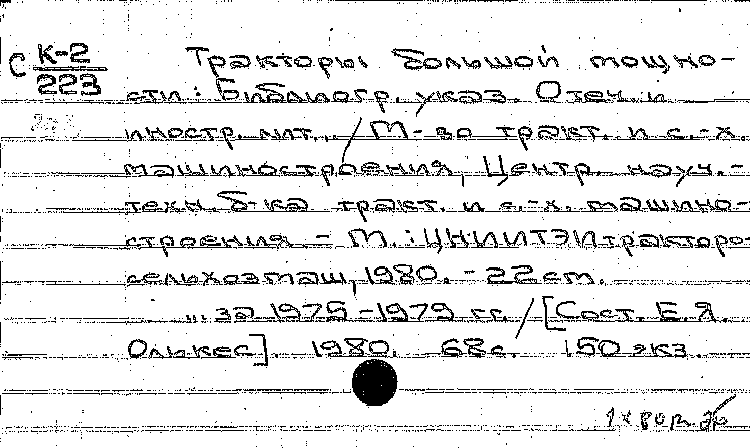 С К-2
223
Тракторы большой мощно-
сти: Библиогр. указ. Отеч. и
иностр. лит.. / М-во тракт. и с.-х.
машиностроения, Центр. науч.-
техн. б-ка тракт. и с.-х. машино-
строения. - М.: ЦНИИТЭИтракторо-
сельхозмаш, 1980. - 22 см.
... за 1975-1979 гг. / [Сост. Е.Я.
Олькес]. 1980. 68с. 150 экз.